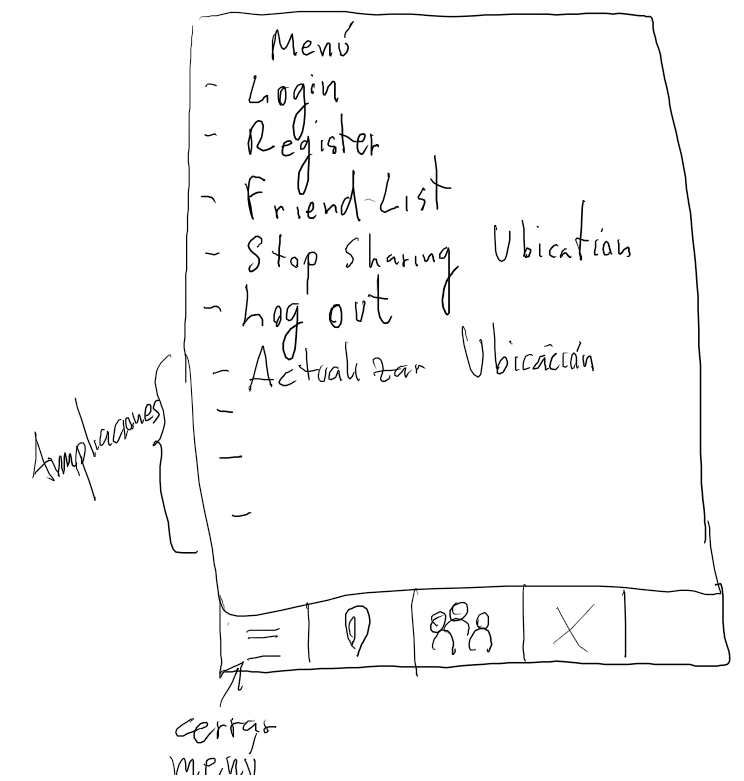 Menú
- Login
- Register
- Friend-List
- Stop Sharing Ubication
- Log out
- Actualizar Ubicación
-
-
-
Ampliaciones
cerrar
menu